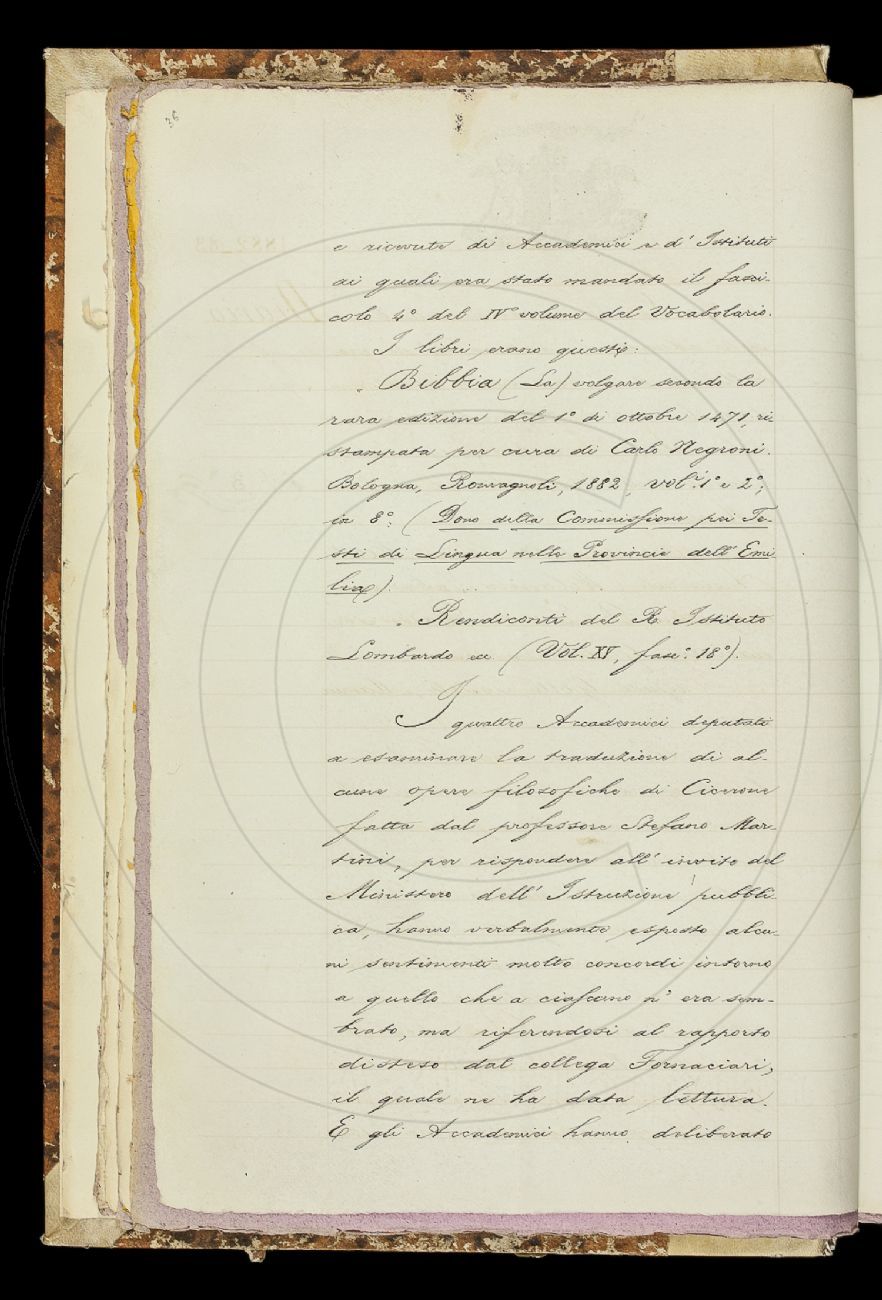 36
e ricevute di Accademici e d' Istituti
ai quali era stato mandato il fasci-
colo 4° del IV° volume del Vocabolario.
I libri erano questi:
Bibbia (La) volgare secondo la
rara edizione del 1° di ottobre 1471, ri-
stampata per cura di Carlo Negroni.
Bologna, Romagnoli, 1882, vol.i 1° e 2°,
in 8°; (Dono della Commissione pei Te-
sti di Lingua nelle Provincie dell' Emi-
lia).
Rendiconti del R. Istituto
Lombardo ec (Vol. XV, fasc.° 18°).
I quattro Accademici deputati
a esaminare la traduzione di al-
cune opere filosofiche di Cicerone
fatta dal professore Stefano Mar-
tini, per rispondere all' invito del
Ministero dell' Istruzione pubbli-
ca, hanno verbalmente esposto alcu-
ni sentimenti molto concordi intorno
a quello che a ciascuno n' era sem-
brato, ma riferendosi al rapporto
disteso dal collega Fornaciari,
il quale ne ha data lettura.
E gli Accademici hanno deliberato